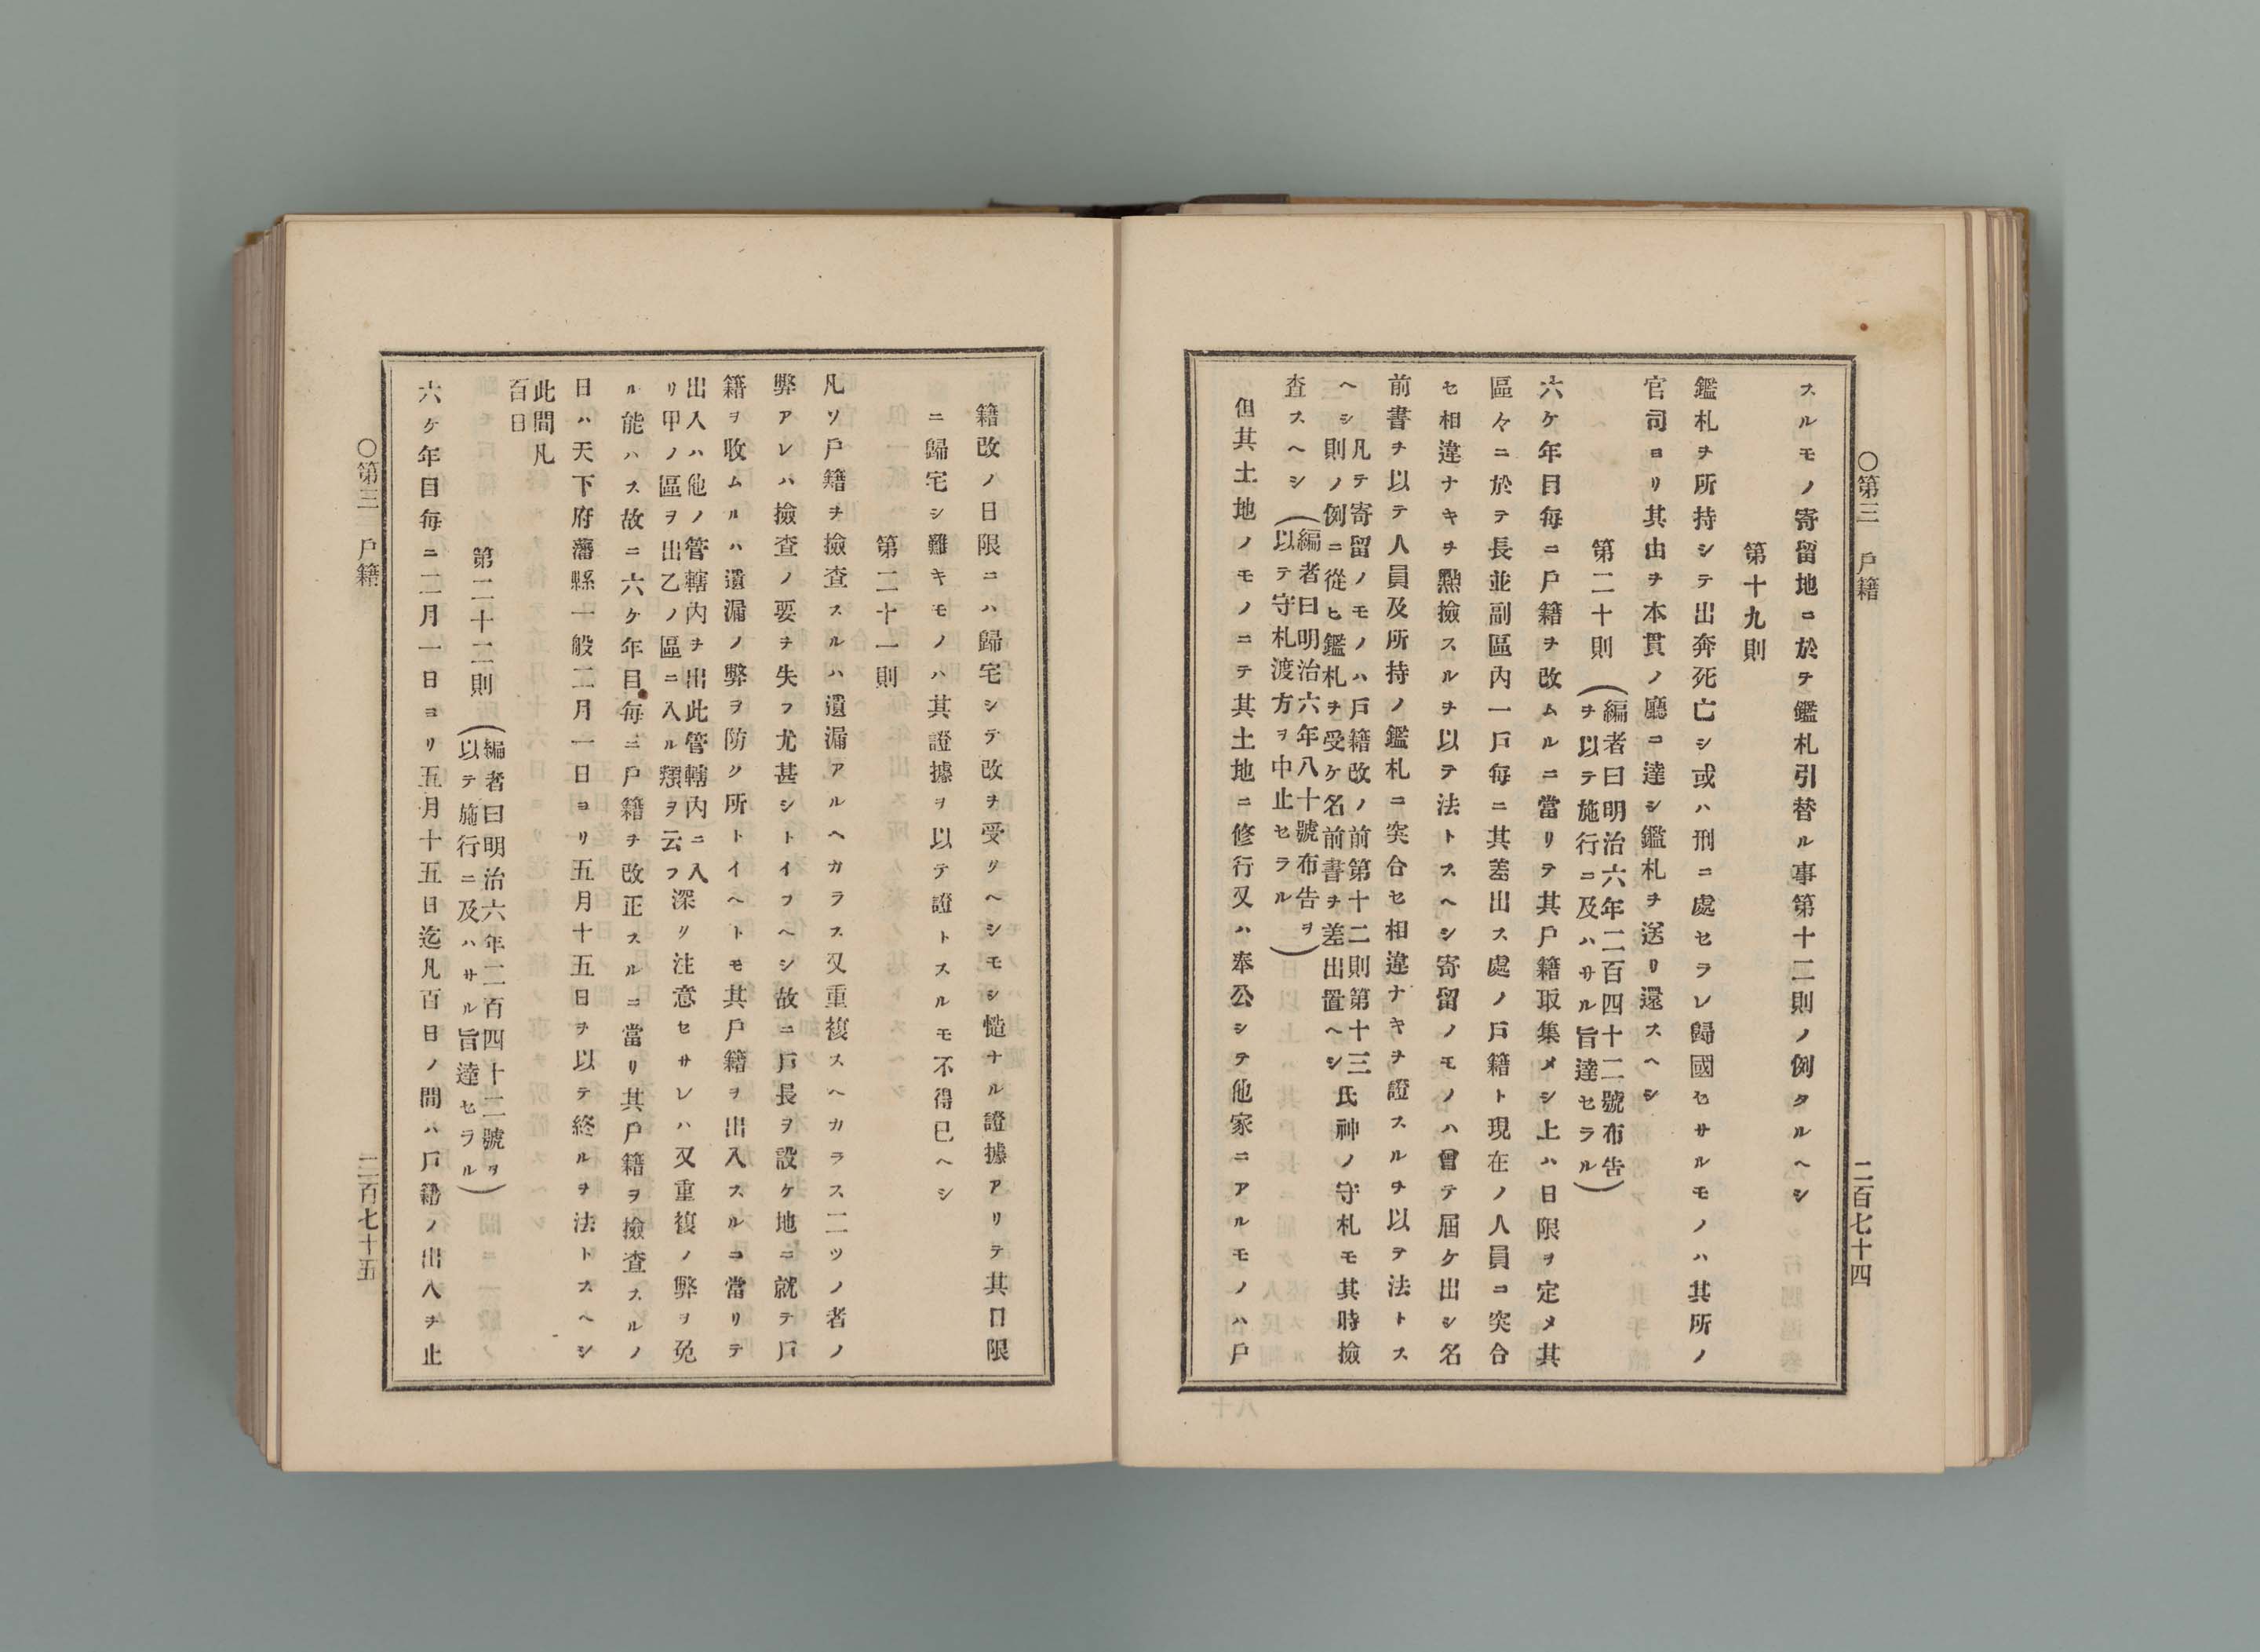 ○第三　戸籍
二百七十四
スルモノ寄留地ニ於テ鑑札引替ル事第十二則ノ例タルヘシ
第十九則
鑑札ヲ所持シテ出奔死亡シ或ハ刑ニ處セラレ歸國セサルモノハ其所ノ
官司ヨリ其由ヲ本貫ノ廳ニ達シ鑑札ヲ送リ還スヘシ
第二十則
（編者曰明治六年二百四十二號布告
ヲ以テ施行ニ及ハサル旨達セラル）
六ケ年目毎ニ戸籍ヲ改ムルニ當リテ其戸籍取集メシ上ハ日限ヲ定メ其
區々ニ於テ長並副區內一戸每ニ其差出ス處ノ戸籍ト現在ノ人員ニ突合
セ相違ナキヲ點撿スルヲ以テ法トスヘシ寄留ノモノハ曾テ屆ケ出シ名
前書ヲ以テ人員及所持ノ鑑札ニ突合セ相違ナキヲ證スルヲ以テ法トス
ヘシ
凡テ寄留ノモノハ戸籍改ノ前前第十二則第十三
則ノ例ニ從ヒ鑑札ヲ受ケ名前書ヲ差出置ヘシ
氏神ノ守札モ其時撿
査スヘシ
（編者曰明治六年八十號布告ヲ
以テ守札渡方ヲ中止セラル）
但其土地ノモノニテ其土地ニ修行又ハ奉公シテ他家ニアルモノハ戸
籍改ノ日限ニハ歸宅シテ改ヲ受リヘシモシ慥ナル證據アリテ其日限
ニ歸宅シ難キモノハ其證據ヲ以テ證トスルモ不得已ヘシ
第二十一則
凡ソ戸籍ヲ撿査スルハ遺漏アルヘカラス又重複スヘカラス二ツノ者ノ
弊アレハ撿查ノ要ヲ失フ尤甚シトイフヘシ故ニ戸長ヲ設ケ地ニ就テ戸
籍ヲ收ムルハ遺漏ノ弊ヲ防ク所トイヘトモ其戸籍ヲ出入スルニ當リテ
出入ハ他ノ管轄內ヲ出此管轄內ニ入
リ甲ノ區ヲ出乙ノ區ニ入ル類ヲ云フ
深リ注意セサレハ又重複ノ弊ヲ免
ル能ハス故ニ六ケ年目每ニ戸籍ヲ改正スルニ當リ其戸籍ヲ撿査スルノ
日ハ天下府藩縣一般二月一日ヨリ五月十五日ヲ以テ終ルヲ法トスヘシ
此間凡
百日
第二十二則
（編者曰明治六年二百四十二號ヲ
以テ施行ニ及ハサル旨達セラル）
六ケ年目每ニ二月一日ヨリ五月十五日迄凡百日ノ間ハ戸籍ノ出入ヲ止
○第三　戸籍
二百七十五